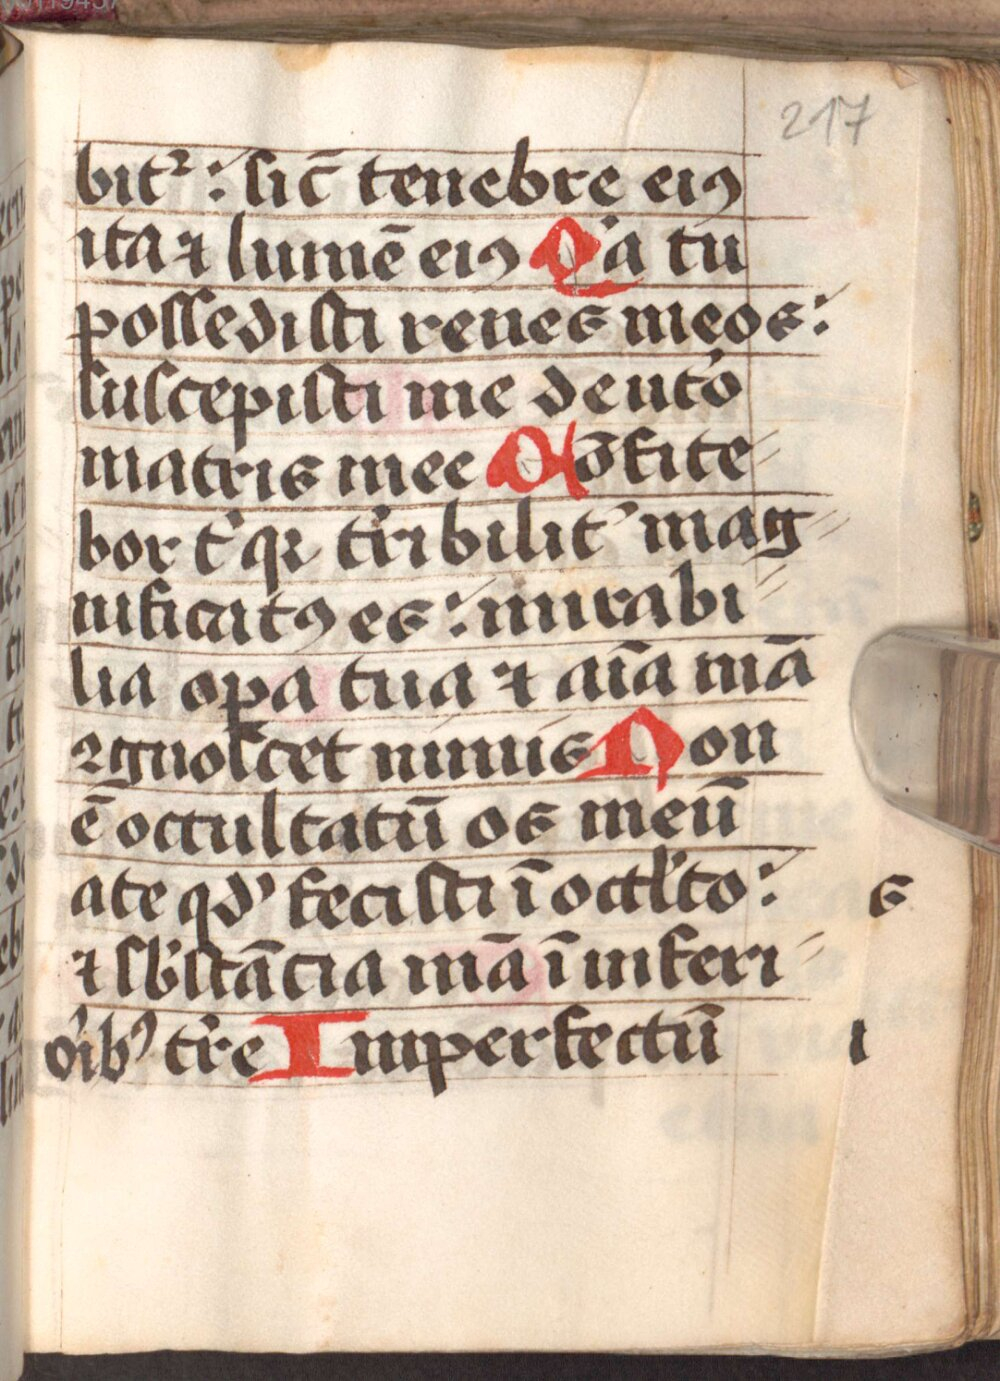 217
bitᷣ : sic̄ tenebre eiꝯ
ita ⁊ lumē eiꝯ Qͥa tu
possedisti renes meos :
suscepisti me de uto᷑
matris mee Cōfite
bor tͥ qꝛ tͬribilit᷑ mag
nificatꝯ es : mirabi
lia oꝑa tua ⁊ aīa mā
ꝯgnoscet nimis Non
ē occultatū os meū
ate qd᷑ fecisti ī occl̓to :
⁊ sb̓stācia mā ī inferi
orib᷒ tr̓e Imperfectū
s
ı